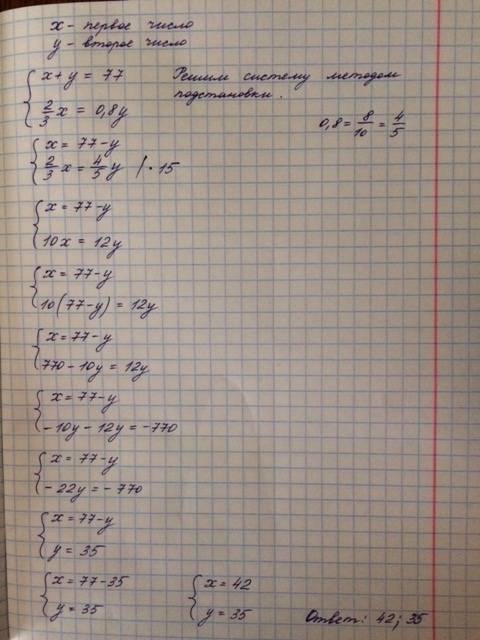 x - первое число
y - второе число
{ x + y = 77 Решим систему методом
2/3 x = 0,8y подстановки.
0,8 = 8/10 = 4/5
{ x = 77 - y
2/3 x = 4/5 y | · 15
{ x = 77 - y
10x = 12y
{ x = 77 - y
10(77 - y) = 12y
{ x = 77 - y
770 - 10y = 12y
{ x = 77 - y
- 10y - 12y = - 770
{ x = 77 - y
- 22y = - 770
{ x = 77 - y
y = 35
{ x = 77 - 35 { x = 42
y = 35 y = 35 Ответ: 42; 35